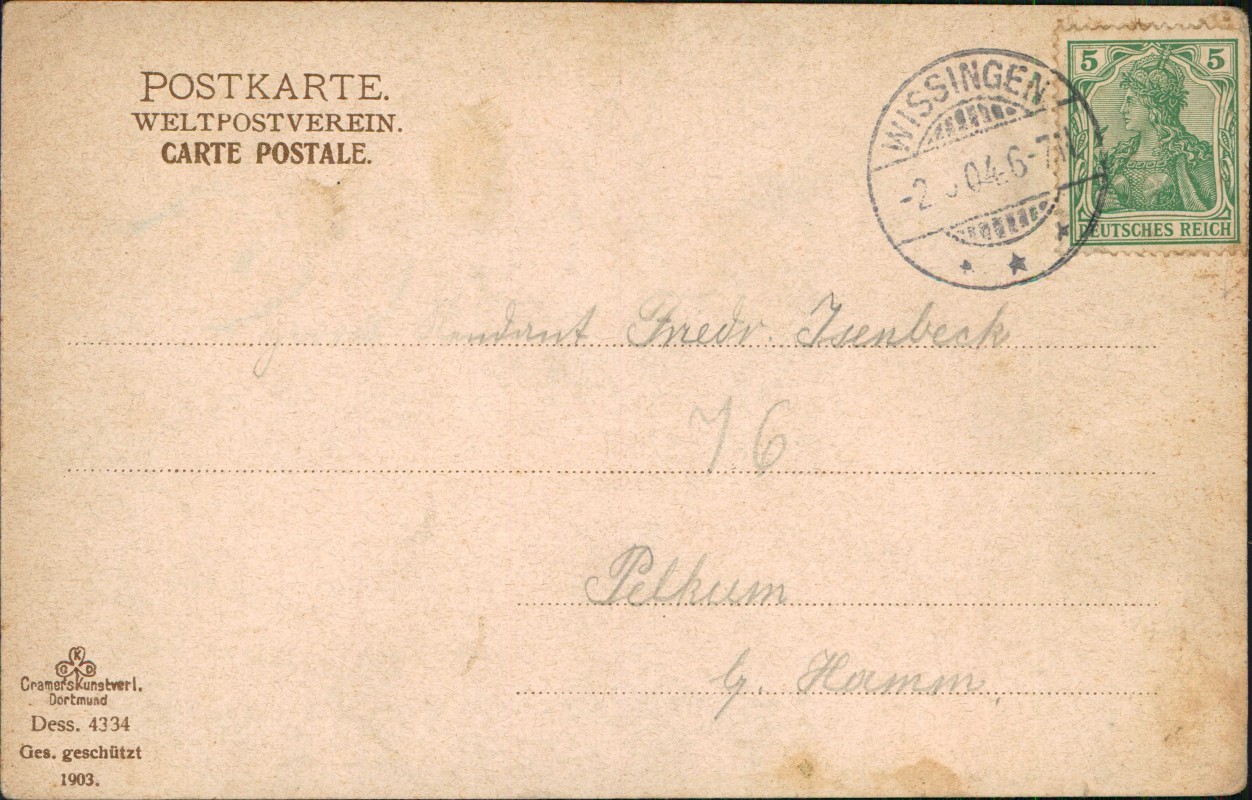 POSTKARTE.
WELTPOSTVEREIN.
CARTE POSTALE.
WISSINGEN
-2. 04.6-7N
5 5
DEUTSCHES REICH
Friedr. Isenbeck
76
Pelkum
b. Hamm
K
G D
Cramers Kunstverl.
Dortmund
Dess. 4334
Ges. geschützt
1903.